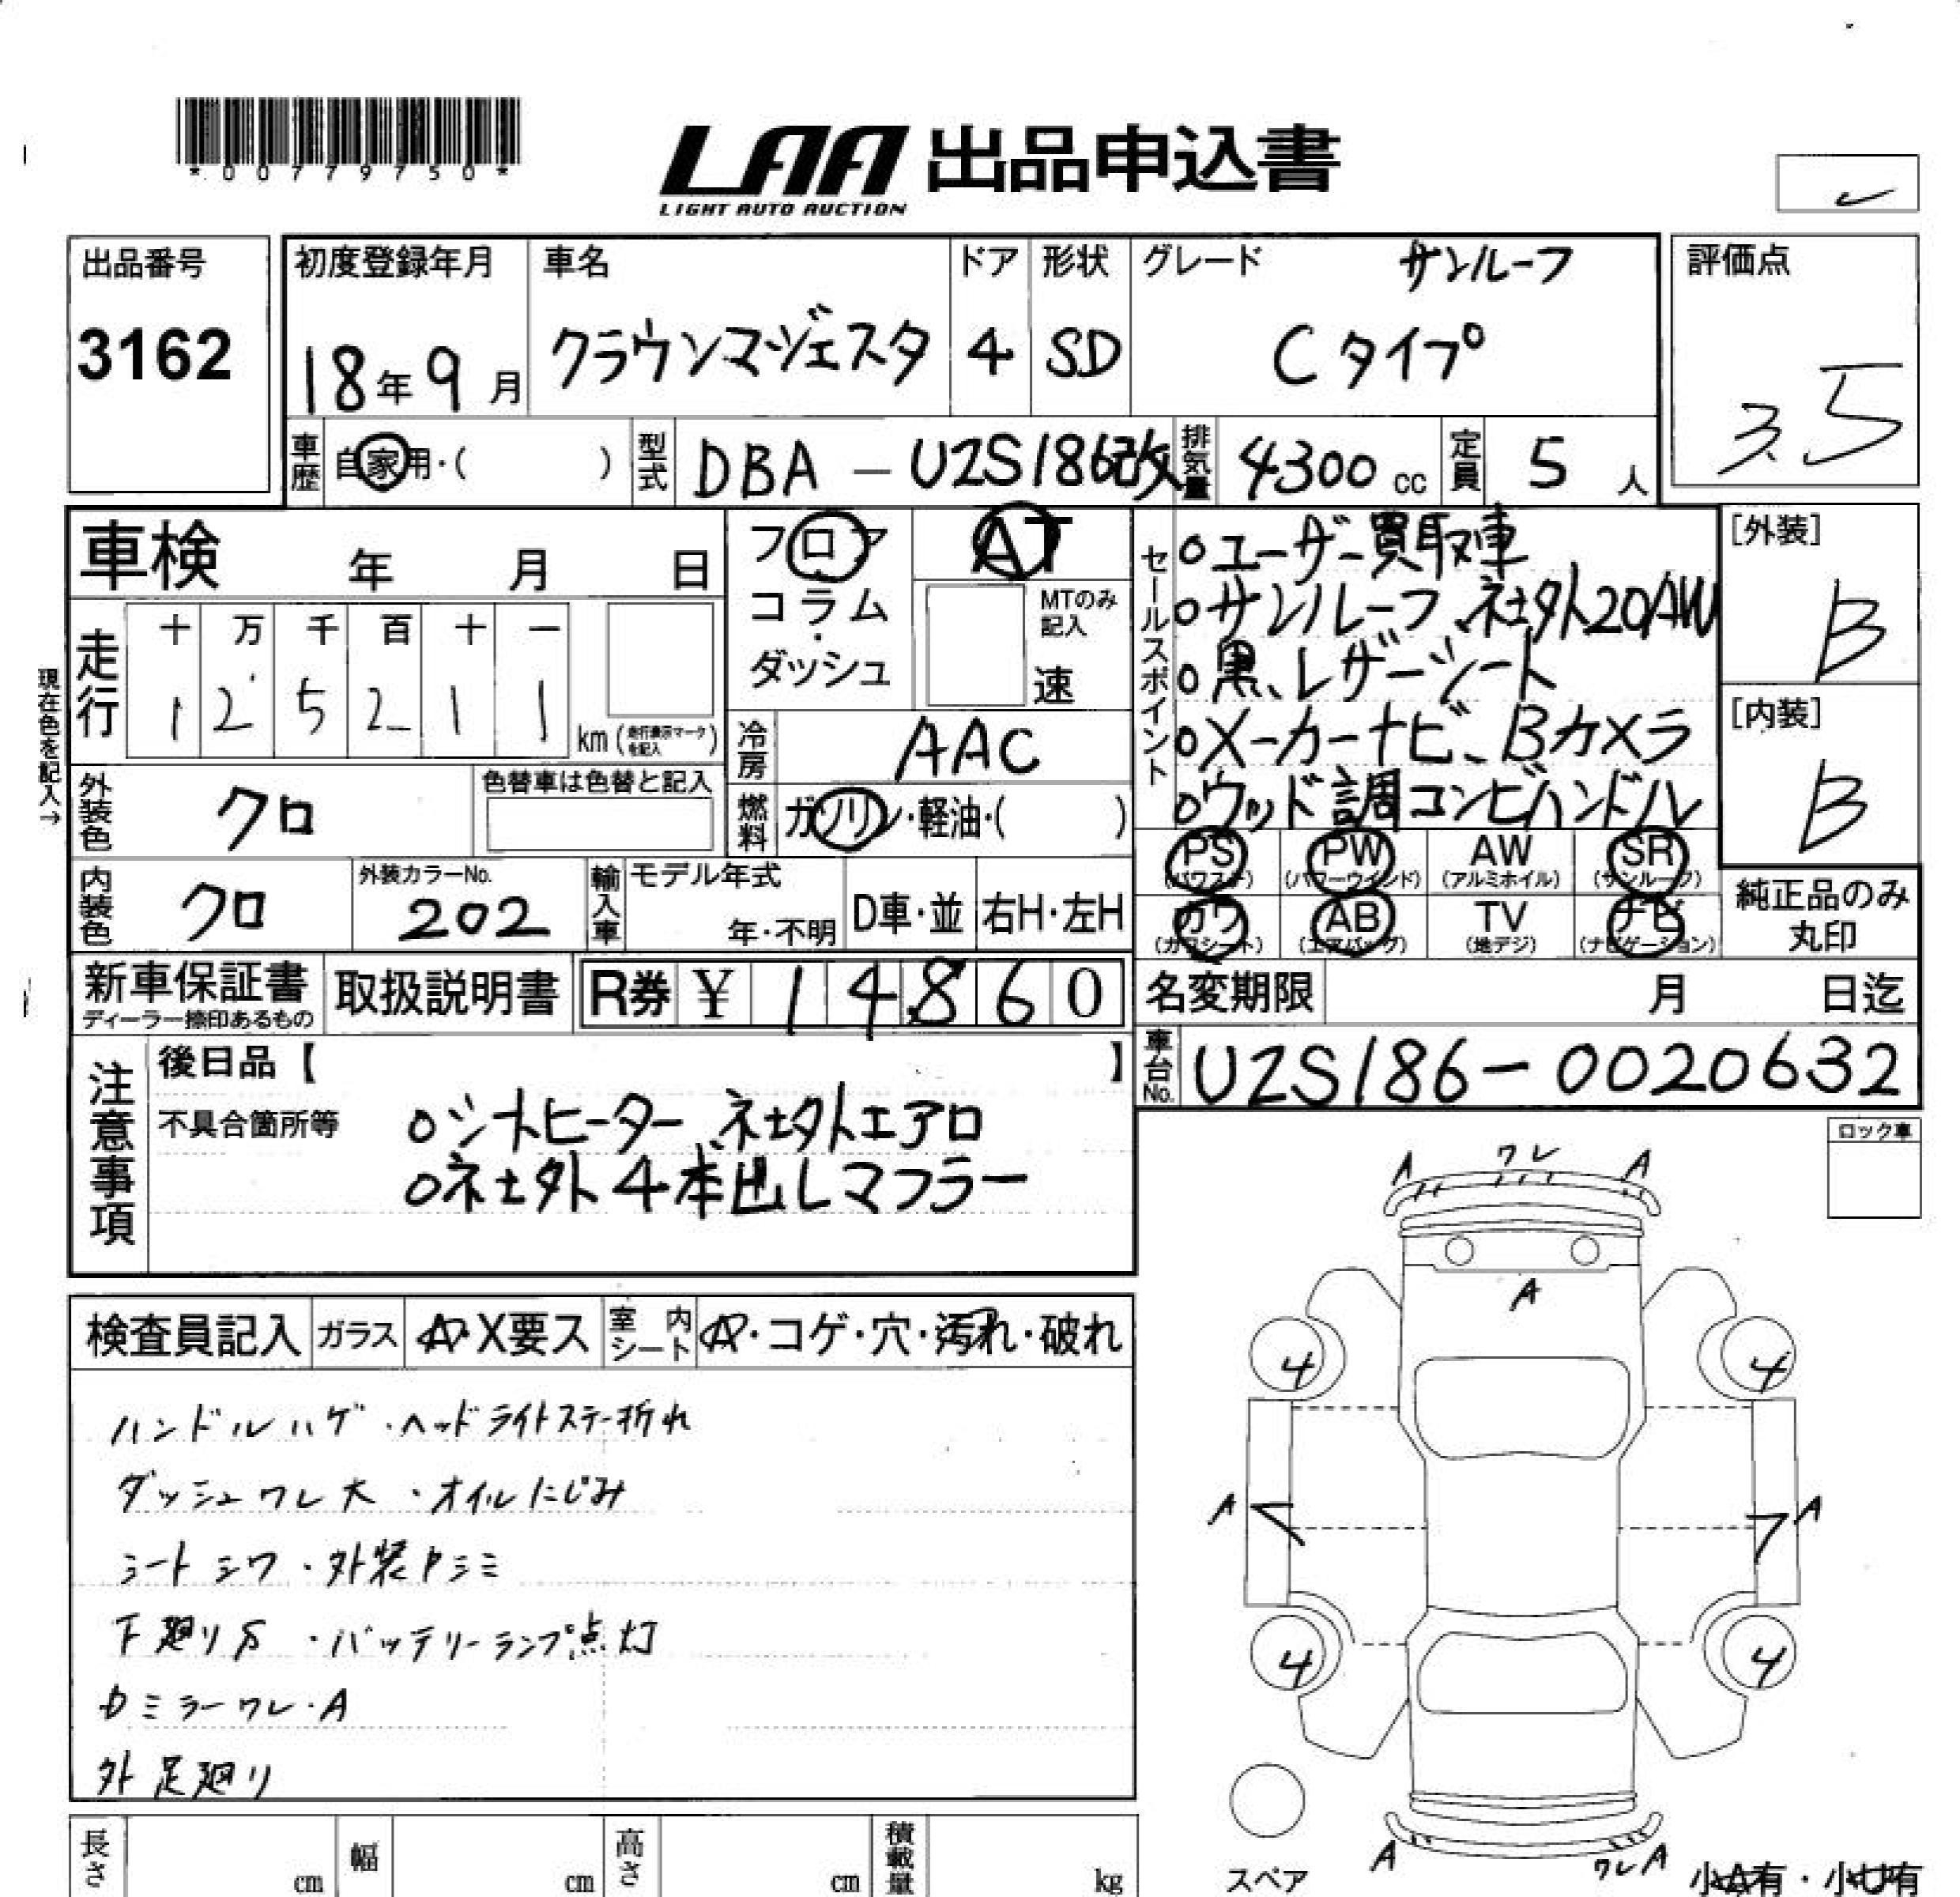 *00779750*
LAA 出品申込書
LIGHT AUTO AUCTION
出品番号
3162
初度登録年月
18年9月
車名
クラウンマジェスタ
ドア
4
形状
SD
グレード
サンルーフ
Cタイプ
評価点
3.5
車歴
自家用・( )
型式
DBA - UZS186改
排気量
4300 cc
定員
5人
車検 年 月 日
走行
十 万 千 百 十 一
1 2 5 2 1 1
km(走行表示マークを記入)
現在色を記入→
フロア
コラム
・
ダッシュ
AT
MTのみ記入
速
冷房
AAC
燃料
ガソリン・軽油・( )
セールスポイント
○ユーザー買取車
○サンルーフ、社外20AW
○黒、レザーシート
○メーカーナビ、Bカメラ
○ウッド調コンビハンドル
[外装]
B
[内装]
B
外装色
クロ
色替車は色替と記入
内装色
クロ
外装カラーNo.
202
輸入車
モデル年式
年・不明
D車・並
右H・左H
PS
(パワステ)
PW
(パワーウインド)
AW
(アルミホイル)
SR
(サンルーフ)
カワ
(カワシート)
AB
(エアバッグ)
TV
(地デジ)
ナビ
(ナビゲーション)
純正品のみ
丸印
新車保証書
ディーラー捺印あるもの
取扱説明書
R券 ¥ 14860
名変期限 月 日迄
車台No.
UZS186-0020632
注意事項
後日品【 】
不具合箇所等
○シートヒーター、社外エアロ
○社外4本出しマフラー
ロック車
検査員記入
ガラス
A・X要ス
室内シート
A・コゲ・穴・汚れ・破れ
ハンドルハゲ・ヘッドライトステー折れ
ダッシュワレ大・オイルにじみ
シートシワ・外装 シミ
下廻りS・バッテリーランプ点灯
ミラーワレ・A
外足廻り
A ワレ A
A
4 4
A A
4 4
A ワレA
スペア
小A有・小U有
長さ cm
幅 cm
高さ cm
積載量 kg